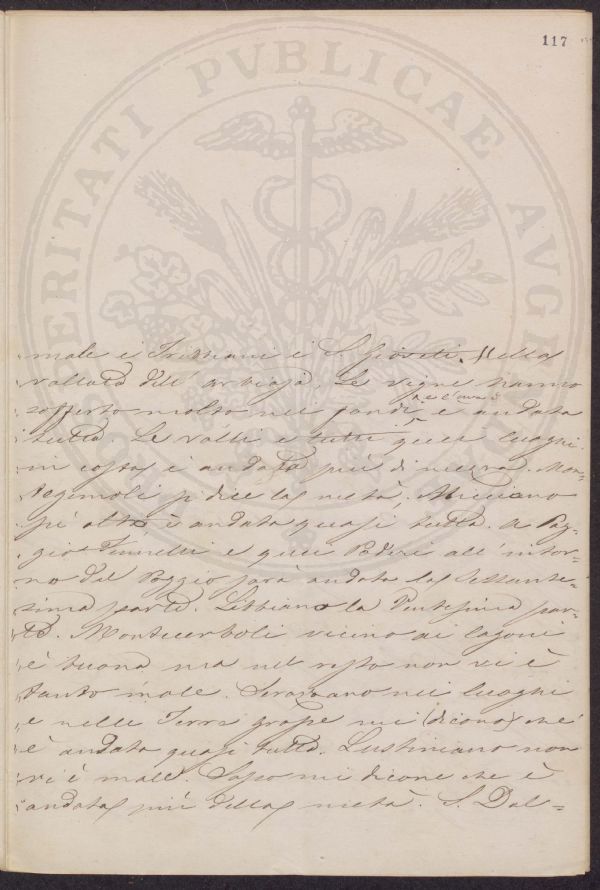 117
PROSPERITATI PVBLICAE AVGENDAE
male e i S.
vallata dell' arbiaja. Le vigne hanno
sofferto molto nei fondi e l'uva è andata
tutta. Le valli e tutti quei luoghi
in costa è andata più di mezza. Mon=
tegemoli si dice la metà, Micciano
pi' alto è andata quasi tutta. A Pog=
gio e quei Poderi all' intor=
no del Poggio sarà andata la sessante=
sima parte. Libbiano la Ventesima par=
te. Montecerboli vicino ai lagoni
è buona ma nel resto non vi è
tanto male. Serazzano nei luoghi
e nelle Terre grosse mi (dicono) che
è andata quasi tutta. Lustiniano non
vi è male. Sasso mi dicone che è
andata più della metà. S. Dal=